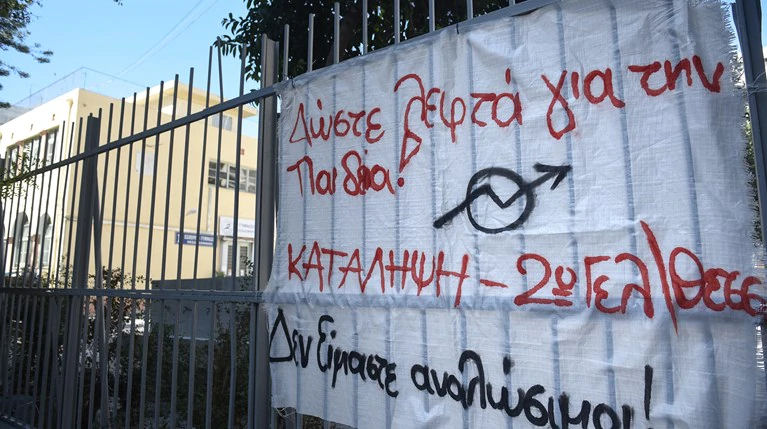 Δώστε λεφτά για την
Παιδία!
ΚΑΤΑΛΗΨΗ - 2ο Γελ/Θεσσ
Δεν είμαστε αναλώσιμοι!